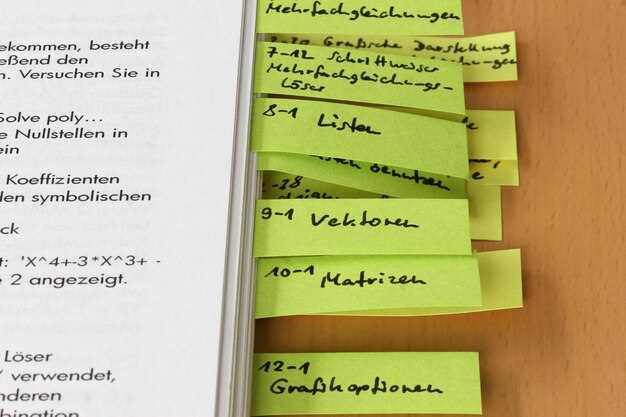 ekommen, besteht
eßend den
n. Versuchen Sie in
Solve poly...
e Nullstellen in
ein
Koeffizienten
den symbolischen
ck
t: 'X^4+-3*X^3+ -
e 2 angezeigt.
Löser
verwendet,
nderen
bination
Mehrfachgleichungen
Grafische Darstellung
7-12 Schrittweiser
Mehrfachgleichungs-
löser
8-1 Listen
benutzen
9-1 Vektoren
10-1 Matrizen
12-1
Grafikoptionen